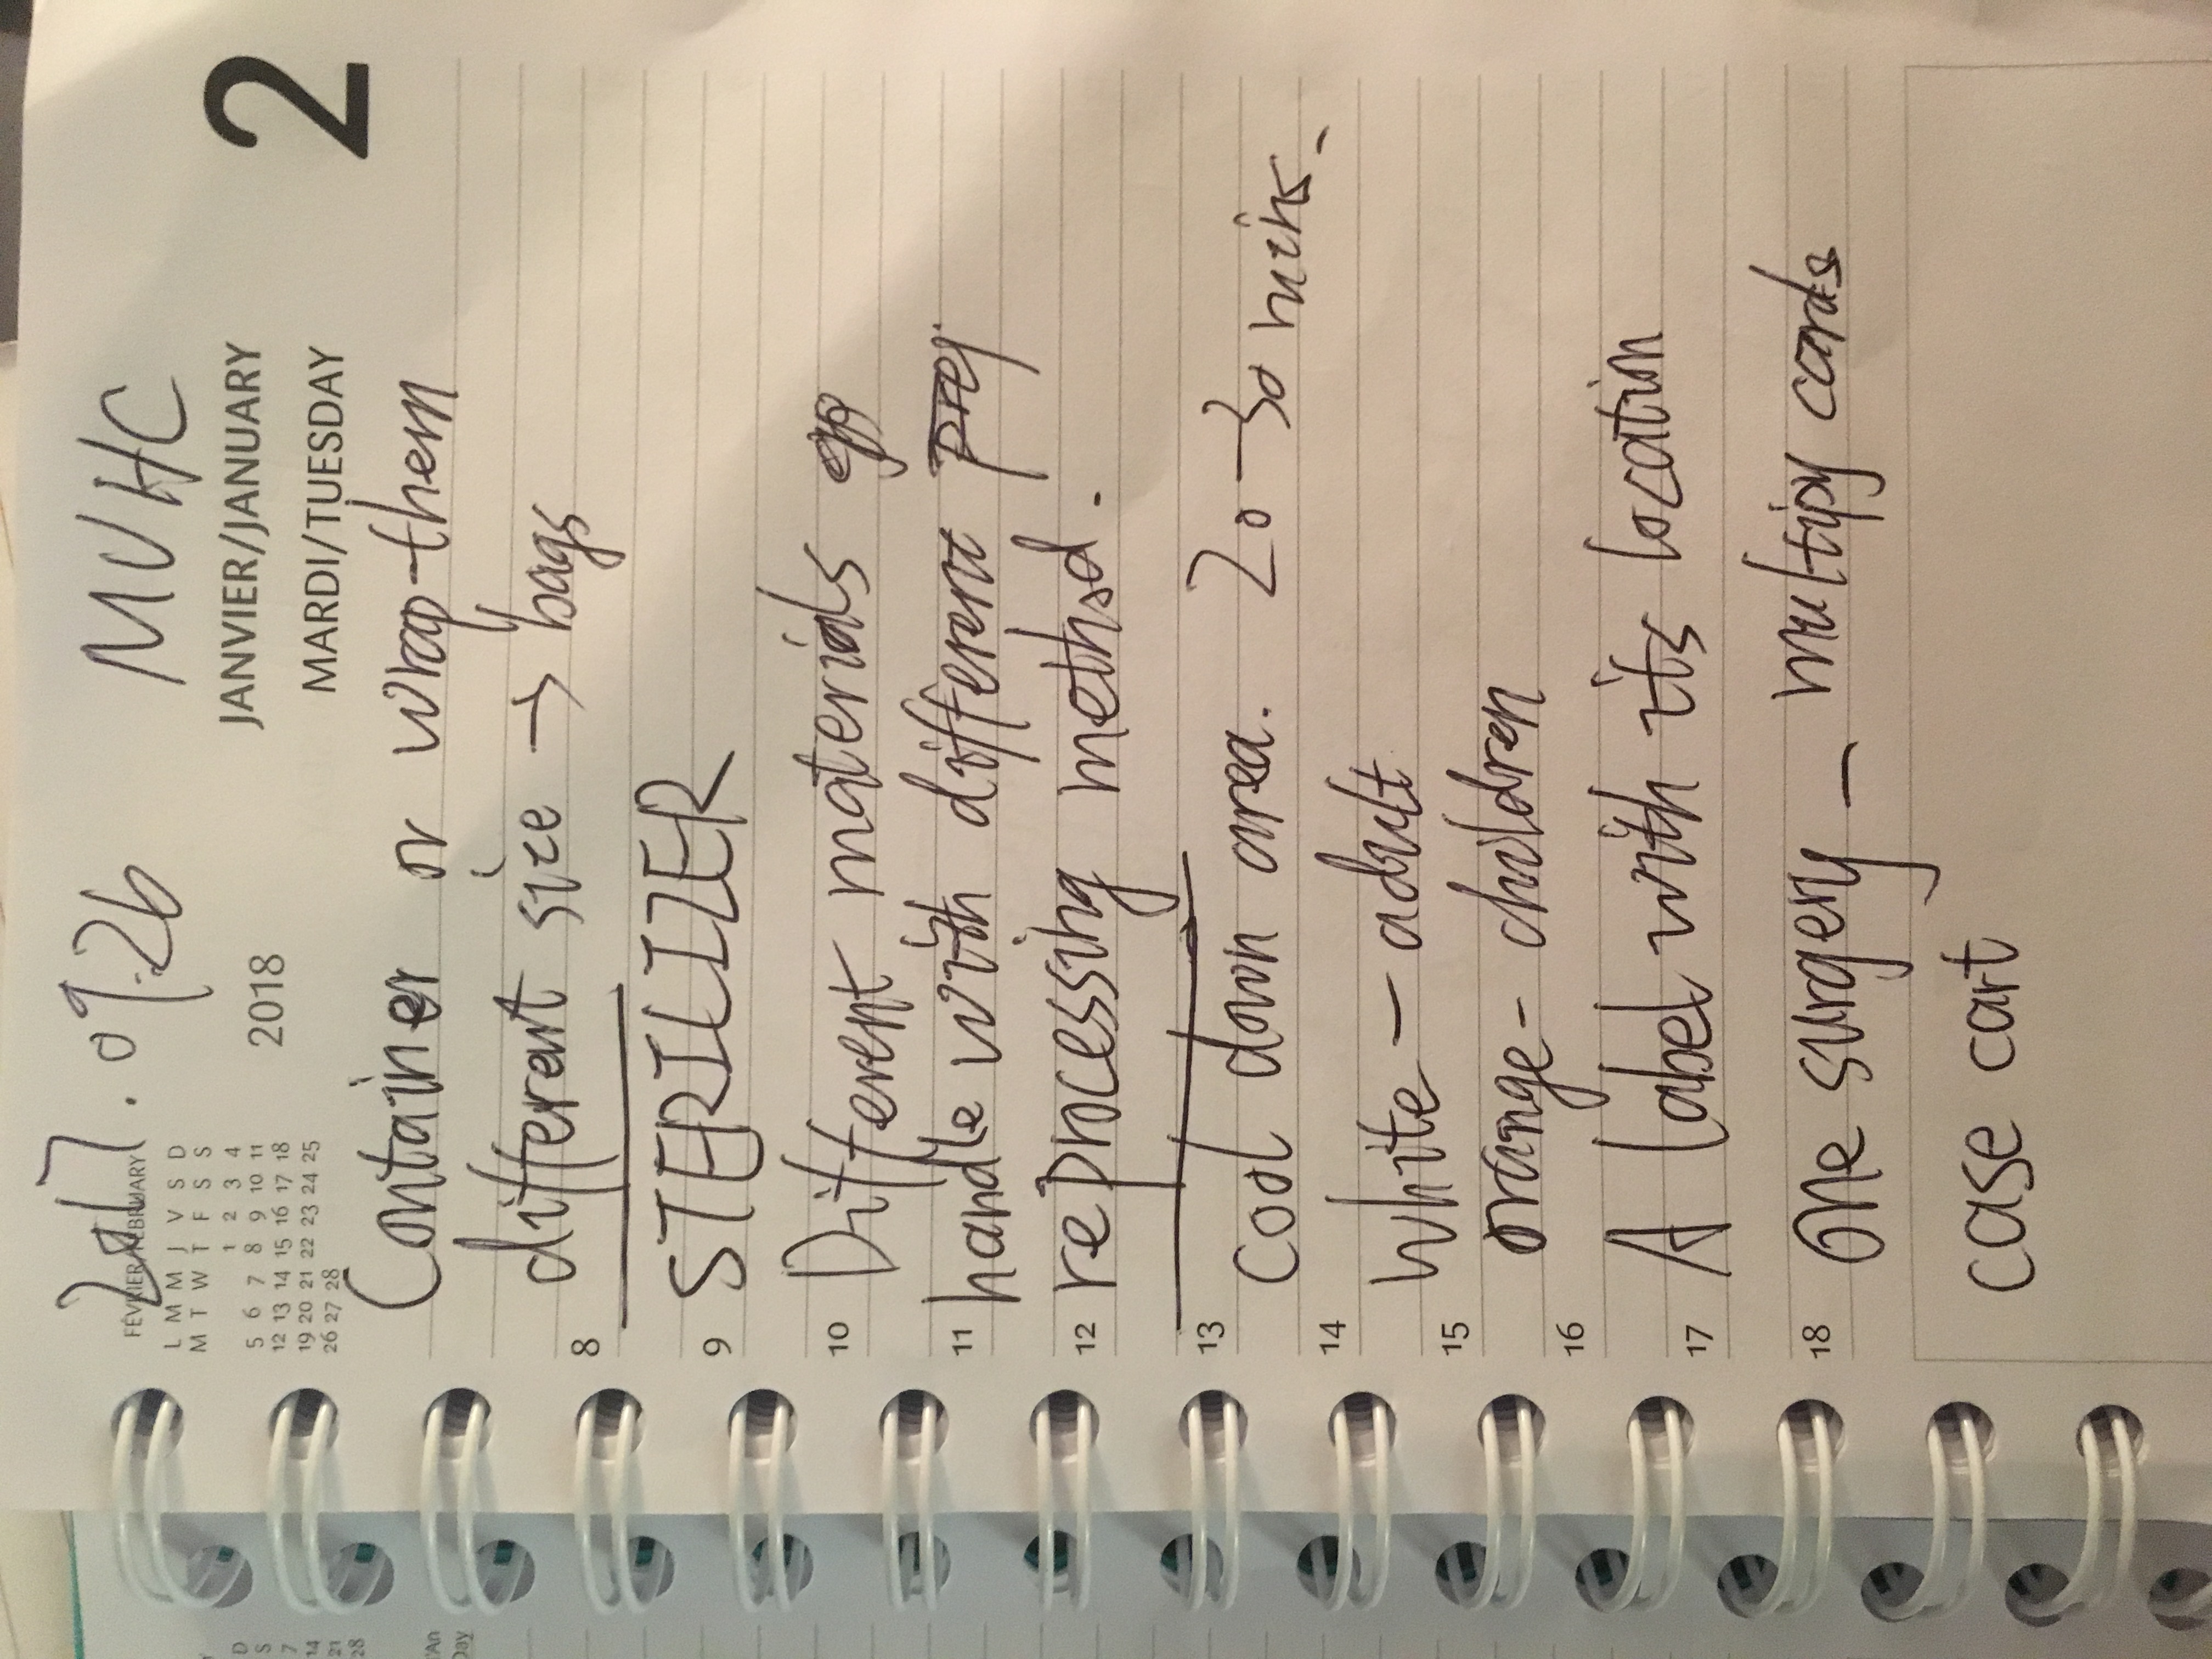 2017.09.26 MUHC
FÉVRIER/FEBRUARY
L M M J V S D
M T W T F S S
1 2 3 4
5 6 7 8 9 10 11
12 13 14 15 16 17 18
19 20 21 22 23 24 25
26 27 28
2018
JANVIER/JANUARY
MARDI/TUESDAY
2
Container or wrap them
different size → bags
8
STERILIZER
9
Different materials go
10
handle with different prep
11
reprocessing method.
12
cool down area. 20-30 mins.
13
14
white - adult
15
orange - children
16
A label with its location
17
one surgery - multipy cards
18
case cart
D
S
7
14
21
28
'An
Day